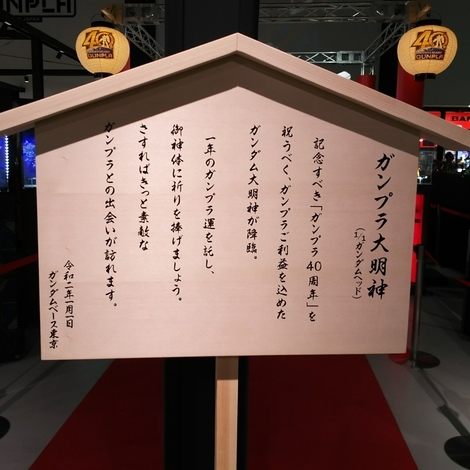 ガンプラ大明神
(1/1ガンダムヘッド)
記念すべき「ガンプラ40周年」を
祝うべく、ガンプラご利益を込めた
ガンダム大明神が降臨。
一年のガンプラ運を託し、
御神体に祈りを捧げましょう。
さすればきっと素敵な
ガンプラとの出会いが訪れます。
令和二年一月一日
ガンダムベース東京
40
GUNPLA
40
GUNPLA
GUNPLA
BAN